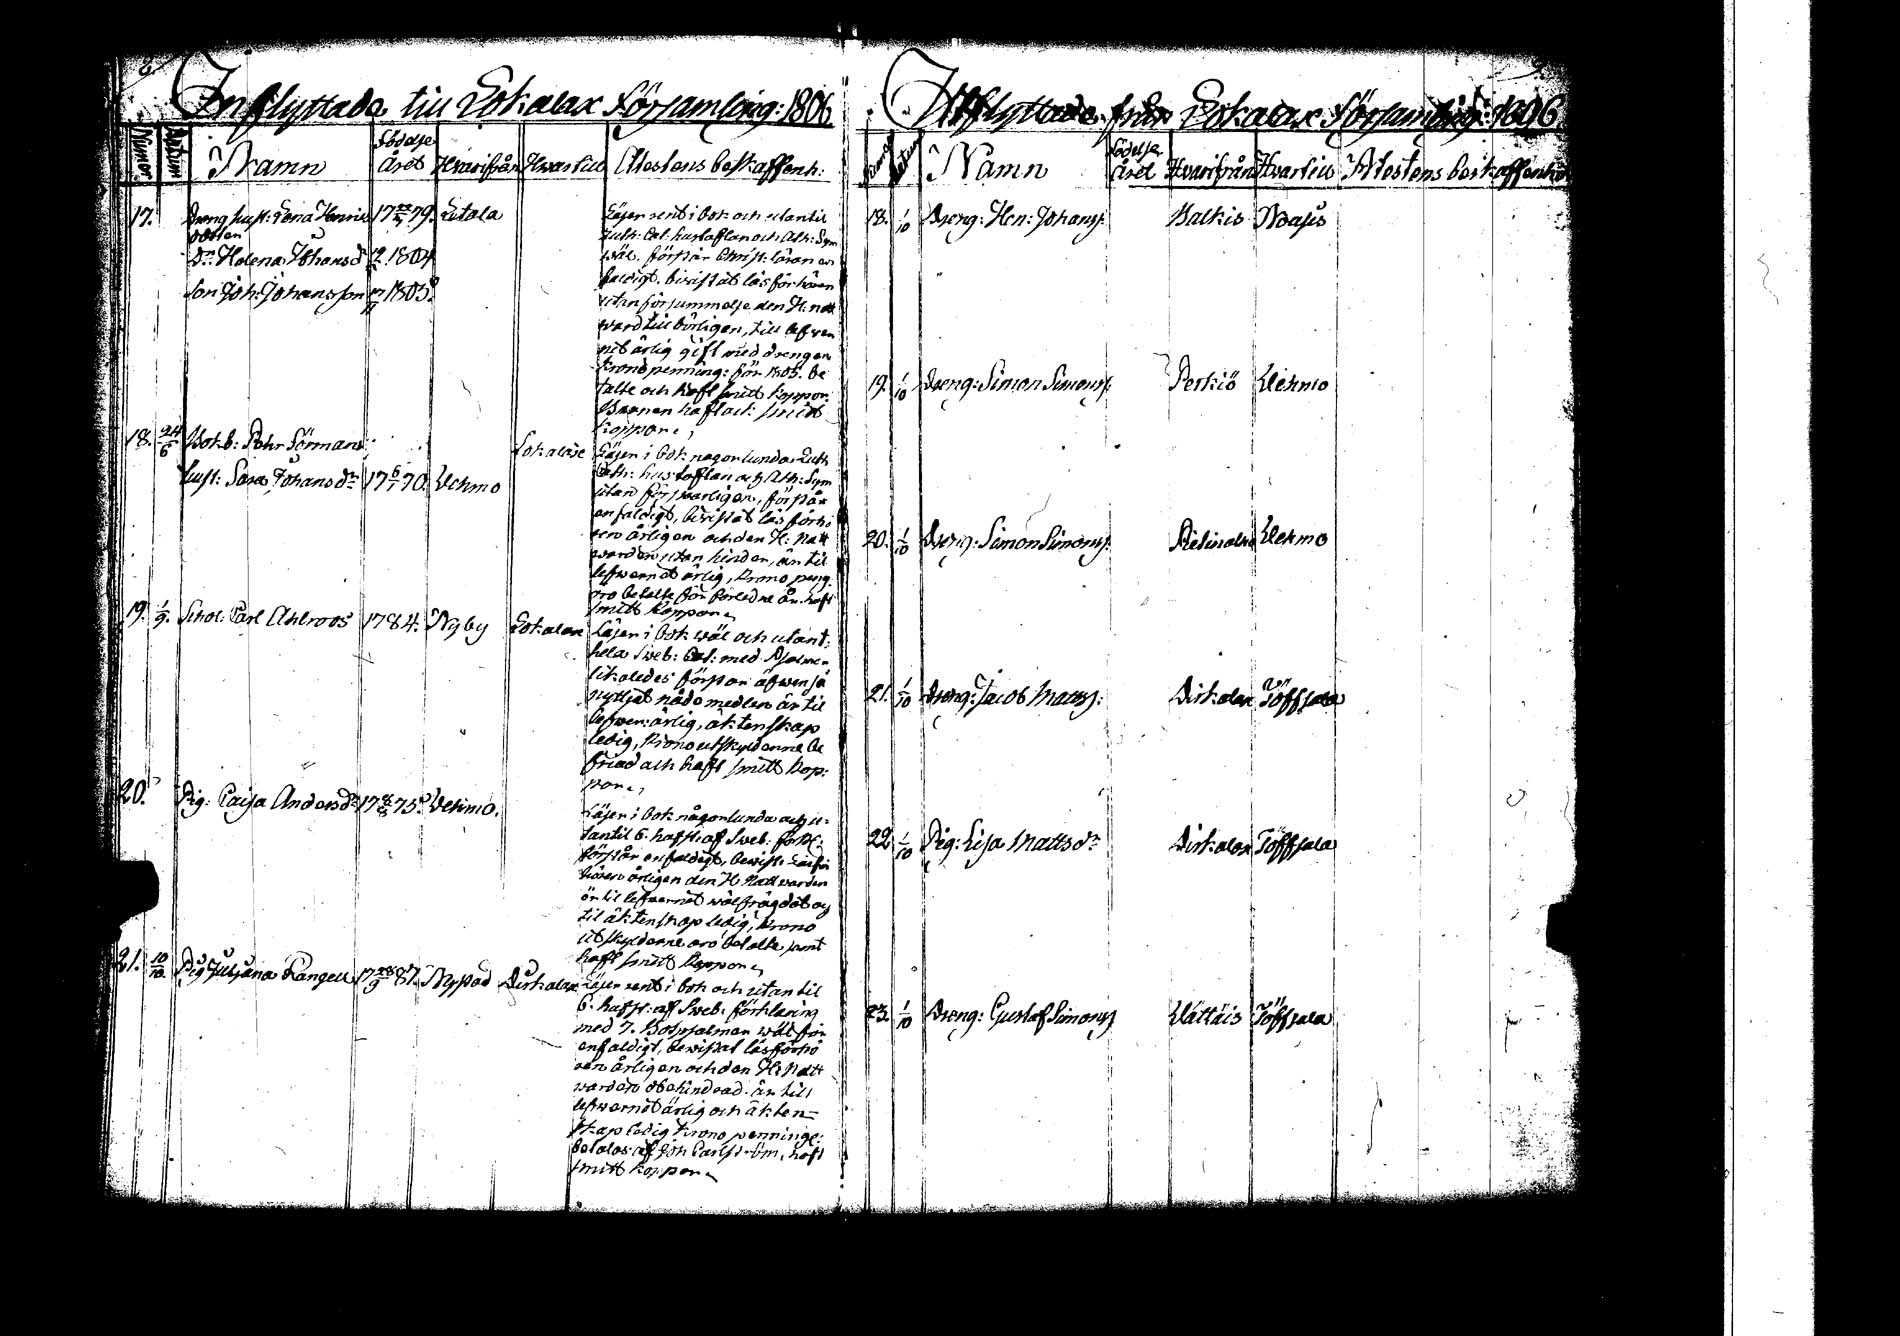 Inflyttade till Lokalax Församling: 1806
Numer Datum Namn Födelse Året Hvarifrån Hwartill Attestens beskaffenh:
17. Dreng hust: Lena Henrics 17 79. Letala Läser rent i bok och utantil
dotter Luth: Cat: hustaflan och Ath: Sym
Dr Helena Johansdr 1804 wäl, förstår Christ: läran en
Son Joh: Johansson 1805. faldigt, bevistat läsförhören
utan försummelse den H: natt
ward till börligen, till lefver
net ärlig gift med drengen
krono penning: för 1805. be
talte och haft smitt koppor.
Barnen haft ock smitt
koppor.
18. 24/6 Bokb: Petter Sörmans Lokalax Läser i bok nagorlunda Luth
hust: Sara Johansdr 17 6/1 70. Vehmo Cath: hustaflan och Ath: Sym
utan försvarligen, förstår
enfaldigt, bevistat läs förhö
ren årligen och den H: Natt
warden utan hinder, än til
lefwernet ärlig, krono peng.
äro betalte för förledne år. haft
smitt koppor.
19. 1/9. Schol: Carl Ahlroos 1784. Nyby Lokalax Läser i bok wäl och utant:
hela Sveb: Cat: med
likaledes förstår äfwen så
nyttjat nådemedlen är til
lefwer: ärlig, äktenskap
ledig, Krono utskylderne be
friad och haft smitt kop:
por.
20. Pig: Caisa Andersdr 17 75. Vehmo. Läser i bok någorlunda och u-
tantil 6. hufst: af Sveb: förkl:
förstår enfaldigt, bewist: Läsför
hören årligen den H. Nattwarden
är til lefwernet wälfrägdat och
til äktenskap ledig, krono
utskylderne äro betalte samt
haft smitt koppor.
21. 10/10. Pig Juliana Rangell 17 28/9 87. Nystad Dirkalax Läser rent i bok och utantil
6. hufst: af Sveb: förklaring
med 7. Botpsalmer wäl för
enfaldigt, bewistat läsförhö
ren årligen och den H: Natt
warden obehindrad. är till
lefwernet ärlig och äkten-
skap ledig krono penninge:
betalas af Joh Carlström, haft
smitt koppor.
Utflyttade från Lokalax Församling: 1806
Numer Datum Namn Födelse Året Hvarifrån Hvartill Attestens beskaffenhet
18. 1/10 Dreng: Hen: Johanss: Balkis
19. 1/10 Dreng: Simon Simonss: Perkiö Vehmo
20. 1/10 Dreng: Simon Simonss: Vehmo
21. 1/10 Dreng: Jacob Matss: Dirkalax Töffsala
22. 1/10 Pig: Lisa Mattsdr Dirkalax Töffsala
23. 1/10 Dreng: Gustaf Simonss Vättäis Töffsala